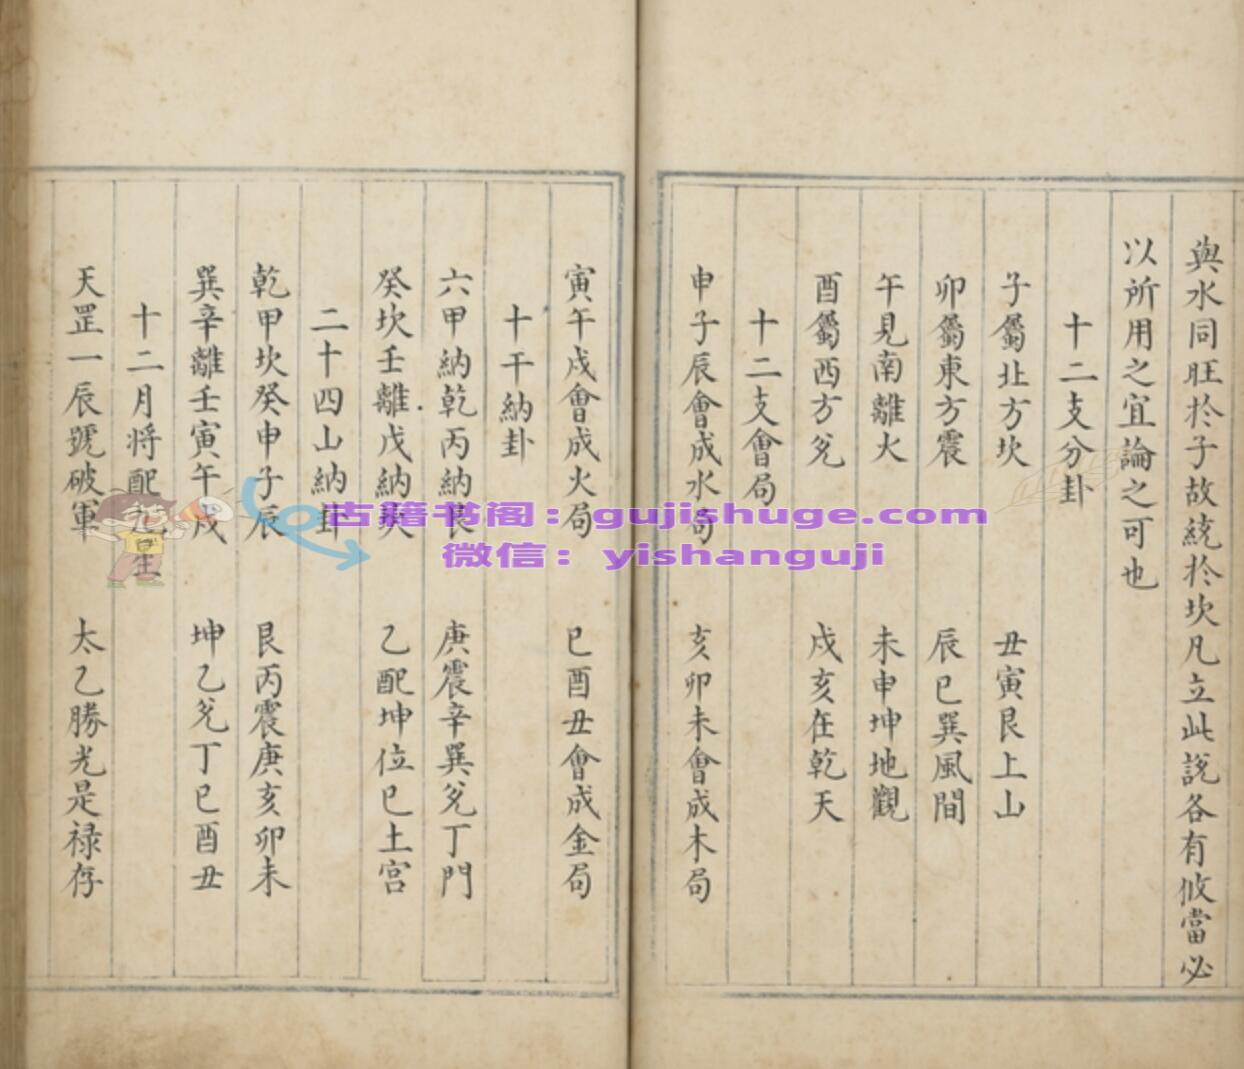 與水同旺於子故統於坎凡立此說各有攸當必
以所用之宜論之可也
十二支分卦
子屬北方坎 丑寅艮上山
卯屬東方震 辰巳巽風間
午見南離火 未申坤地觀
酉屬西方兌 戍亥在乾天
十二支會局
申子辰會成水局 亥卯未會成木局
寅午戍會成火局 巳酉丑會成金局
十干納卦
六甲納乾丙納艮 庚震辛巽兌丁門
癸坎壬離戊納坎 乙配坤位巳土宫
二十四山納卦
乾甲坎癸申子辰 艮丙震庚亥卯未
巽辛離壬寅午戍 坤乙兌丁巳酉丑
十二月将配
天罡一辰號破軍 太乙勝光是禄存
古籍书阁：gujishuge.com
微信：yishanguji